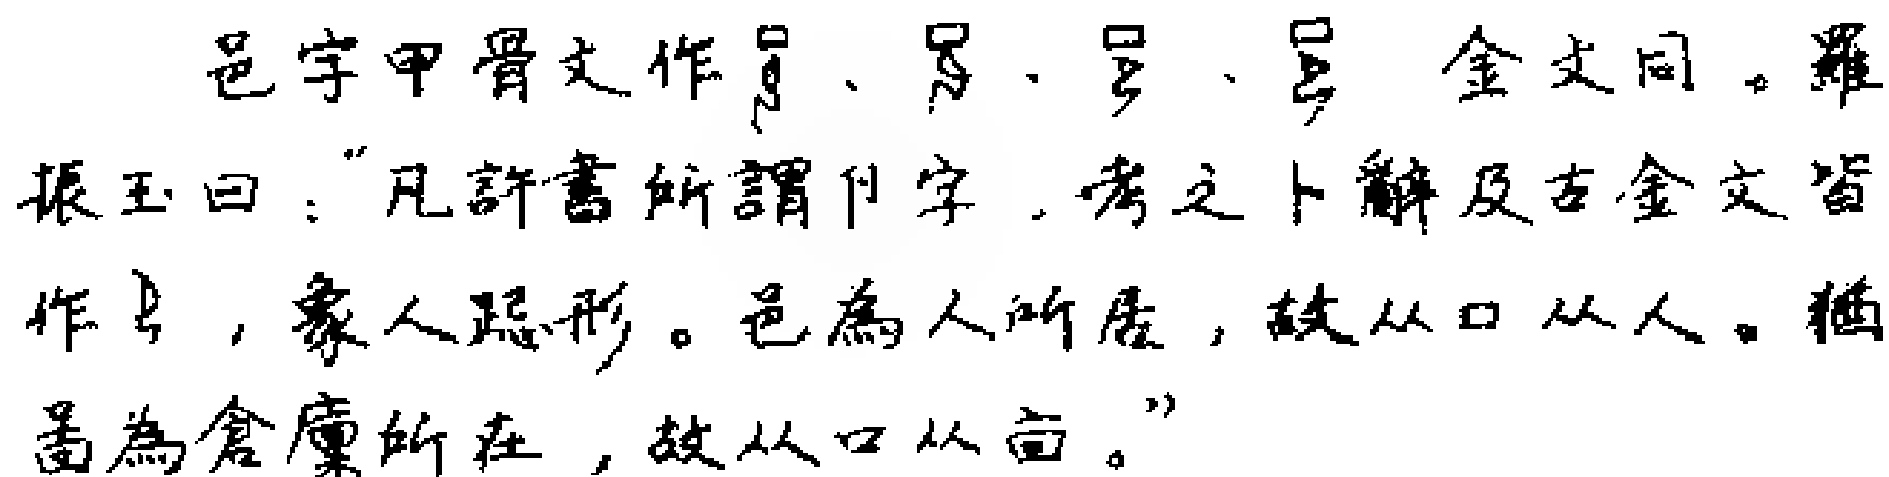 邑字甲骨文作、、、金文同。羅
振玉曰：“凡許書所謂卪字，考之卜辭及古金文皆
作，象人跽形。邑為人所居，故从口从人。猶
啚為倉廩所在，故从口从㐭。”